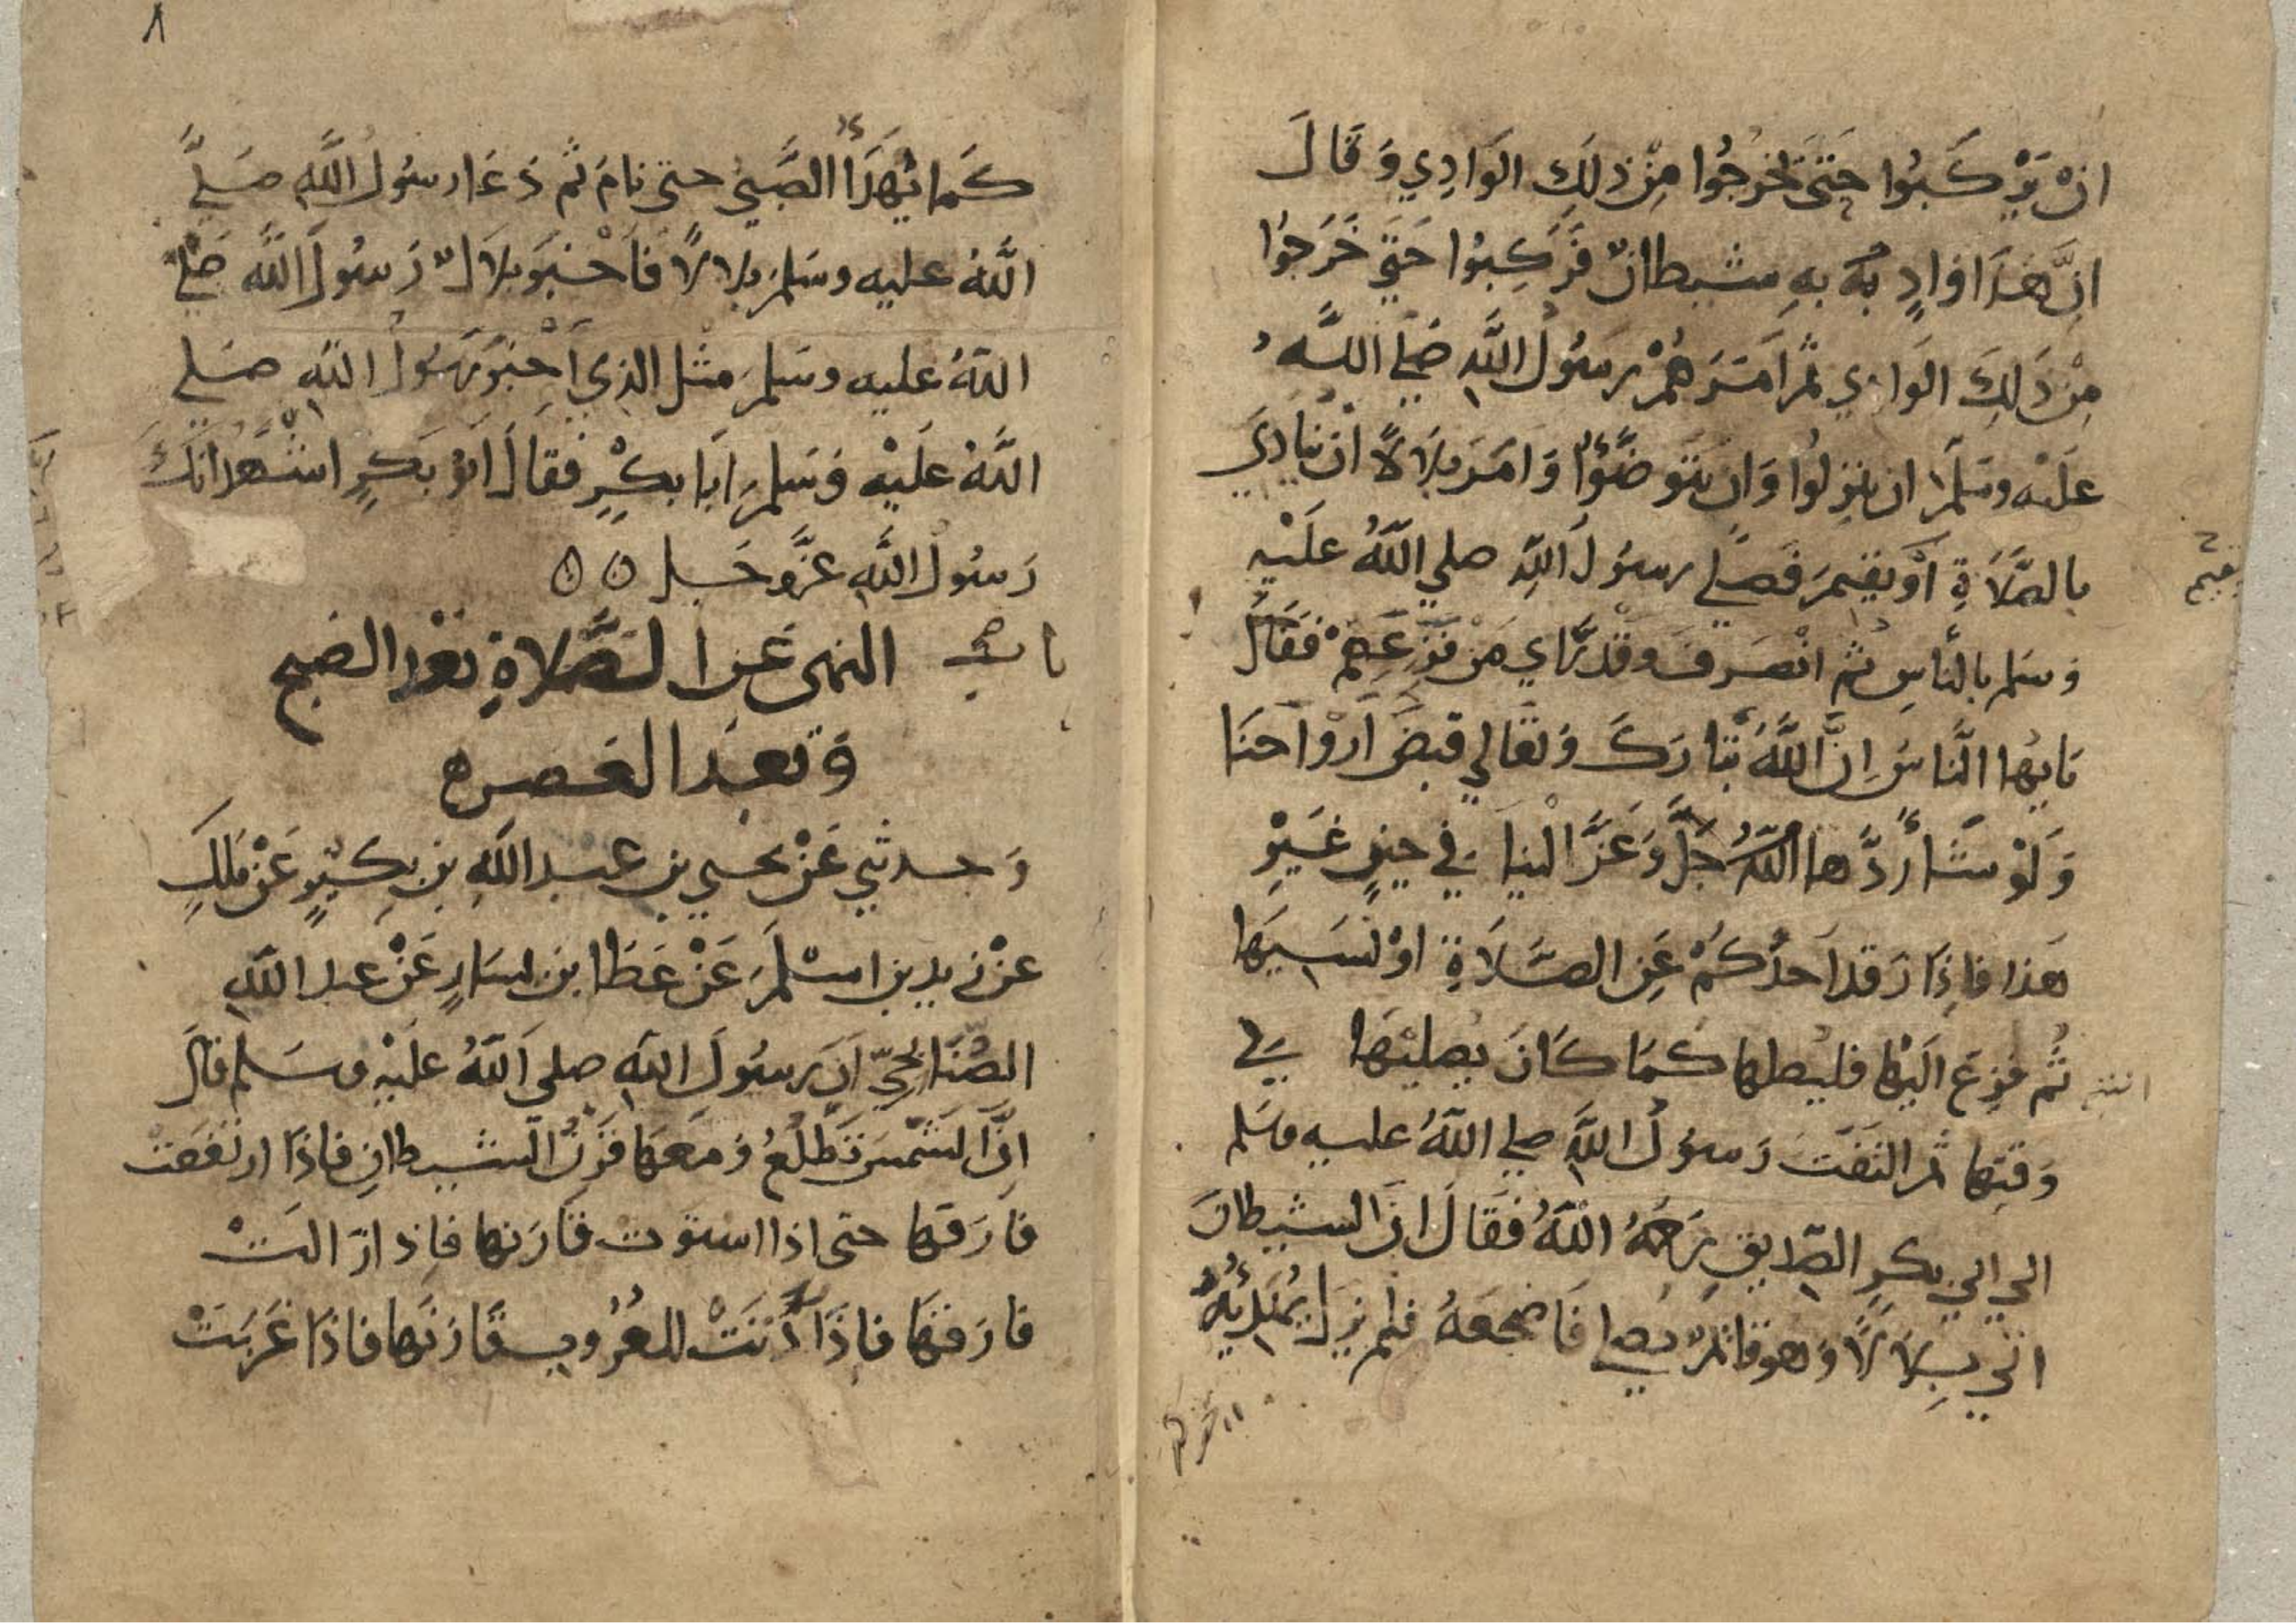 ان يركبوا حتى يخرجوا من ذلك الوادي وقال
ان هذا واد به به شيطان فركبوا حتي خرجوا
من ذلك الوادي ثم امرهم رسول الله صلي الله
عليه وسلم ان ينزلوا وان يتوضؤا وامر بلالا ان ينادي
بالصلاة او يقيم فصلي رسول الله صلي الله عليه
وسلم بالناس ثم انصرف وقد راي من فزعهم فقال
يايها الناس ان الله تبارك وتعالي قبض ارواحنا
ولو شا ردها الله جل وعز الينا في حين غير
هذا فاذا رقد احدكم عن الصلاة او نسيها
ثم فزع اليها فليصلها كما كان يصليها في
وقتها ثم التفت رسول الله صلي الله عليه وسلم
الي ابي بكر الصديق رحمه الله فقال ان الشيطان
اتي بلالا وهو قائم يصلي فاضجعه فلم يزل يهدئه
يقيم
٨
كما يهدأ الصبي حتى نام ثم دعا رسول الله صلي
الله عليه وسلم بلالا فاخبر بلال رسول الله صلي
الله عليه وسلم مثل الذي اخبر رسول الله صلي
الله عليه وسلم ابا بكر فقال ابو بكر اشهد انك
رسول الله عز وجل ٥ ٥
باب النهى عن الصلاة بعد الصبح
وبعد العصر ه
وحدثني عن يحيي بن عبد الله بن بكير عن ملك
عن زيد بن اسلم عن عطا بن يسار عن عبد الله
الصنابحي ان رسول الله صلى الله عليه وسلم قال
ان الشمس تطلع ومعها قرن الشيطان فاذا ارتفعت
فارقها حتى اذا استوت قارنها فاذا زالت
فارقها فاذا دنت للغروب قارنها فاذا غربت